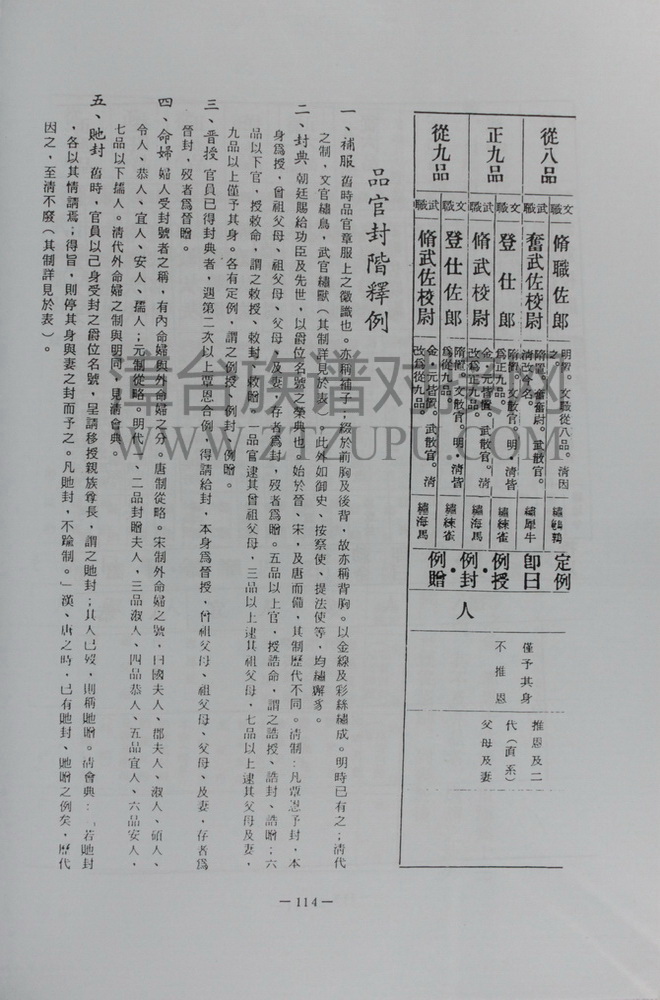 從八品
正九品
從九品
文職
脩職佐郎
明置。文職從八品。清因之。
繡鵪鶉
武職
奮武佐校尉
隋置奮武尉。武散官。清改今名。
繡犀牛
文職
登仕郎
隋置。文散官。明、清皆爲正九品。
繡練雀
武職
脩武校尉
金、元皆置。武散官。清改爲正九品。
繡海馬
文職
登仕佐郎
隋置。文散官。明、清皆爲從九品。
繡練雀
武職
脩武佐校尉
金、元皆置。武散官。清改爲從九品。
繡海馬
定例
即曰
例授
例封
例贈
人
僅予其身
不推恩
推恩及二
代(直系)
父母及妻
品官封階釋例
一、補服 舊時品官章服上之徽識也。亦稱補子;綴於前胸及後背,故亦稱背胸。以金線及彩絲繡成。明時已有之;清代
之制,文官繡鳥,武官繡獸(其制詳見於表)。此外如御史、按察使、提法使等,均繡獬豸。
二、封典 朝廷賜給功臣及先世,以爵位名號之榮典也。始於晉、宋,及唐而備,其制歷代不同。清制:凡覃恩予封,本
身爲授,曾祖父母、祖父母、父母及妻,存者爲封,歿者爲贈。五品以上官,授誥命,謂之誥授、誥封、誥贈;六
品以下官,授敕命,謂之敕授、敕封、敕贈。一品官逮其曾祖父母,三品以上逮其祖父母,七品以上逮其父母及妻,
九品以上僅予其身。各有定例,謂之例授、例封、例贈。
三、晉授 官員已得封典者,遇第二次以上覃恩合例,得請給封,本身爲晉授,曾祖父母、祖父母、父母、及妻,存者爲
晉封,歿者爲晉贈。
四、命婦 婦人受封號者之稱,有內命婦與外命婦之分。唐制從略。宋制外命婦之號,曰國夫人、郡夫人、淑人、碩人、
令人、恭人、宜人、安人、孺人;元制從略。明代一、二品封贈夫人,三品淑人、四品恭人、五品宜人、六品安人,
七品以下孺人。清代外命婦之制與明同,見清會典。
五、貤封 舊時,官員以己身受封之爵位名號,呈請移授親族尊長,謂之貤封;其人已歿,則稱貤贈。清會典:「若貤封
,各以其情請焉;得旨,則停其身與妻之封而予之。凡貤封,不踰制。」漢、唐之時,已有貤封、貤贈之例矣,歷代
因之,至清不廢(其制詳見於表)。
— 114 —
族谱对
WWW.ZTZUPU.COM